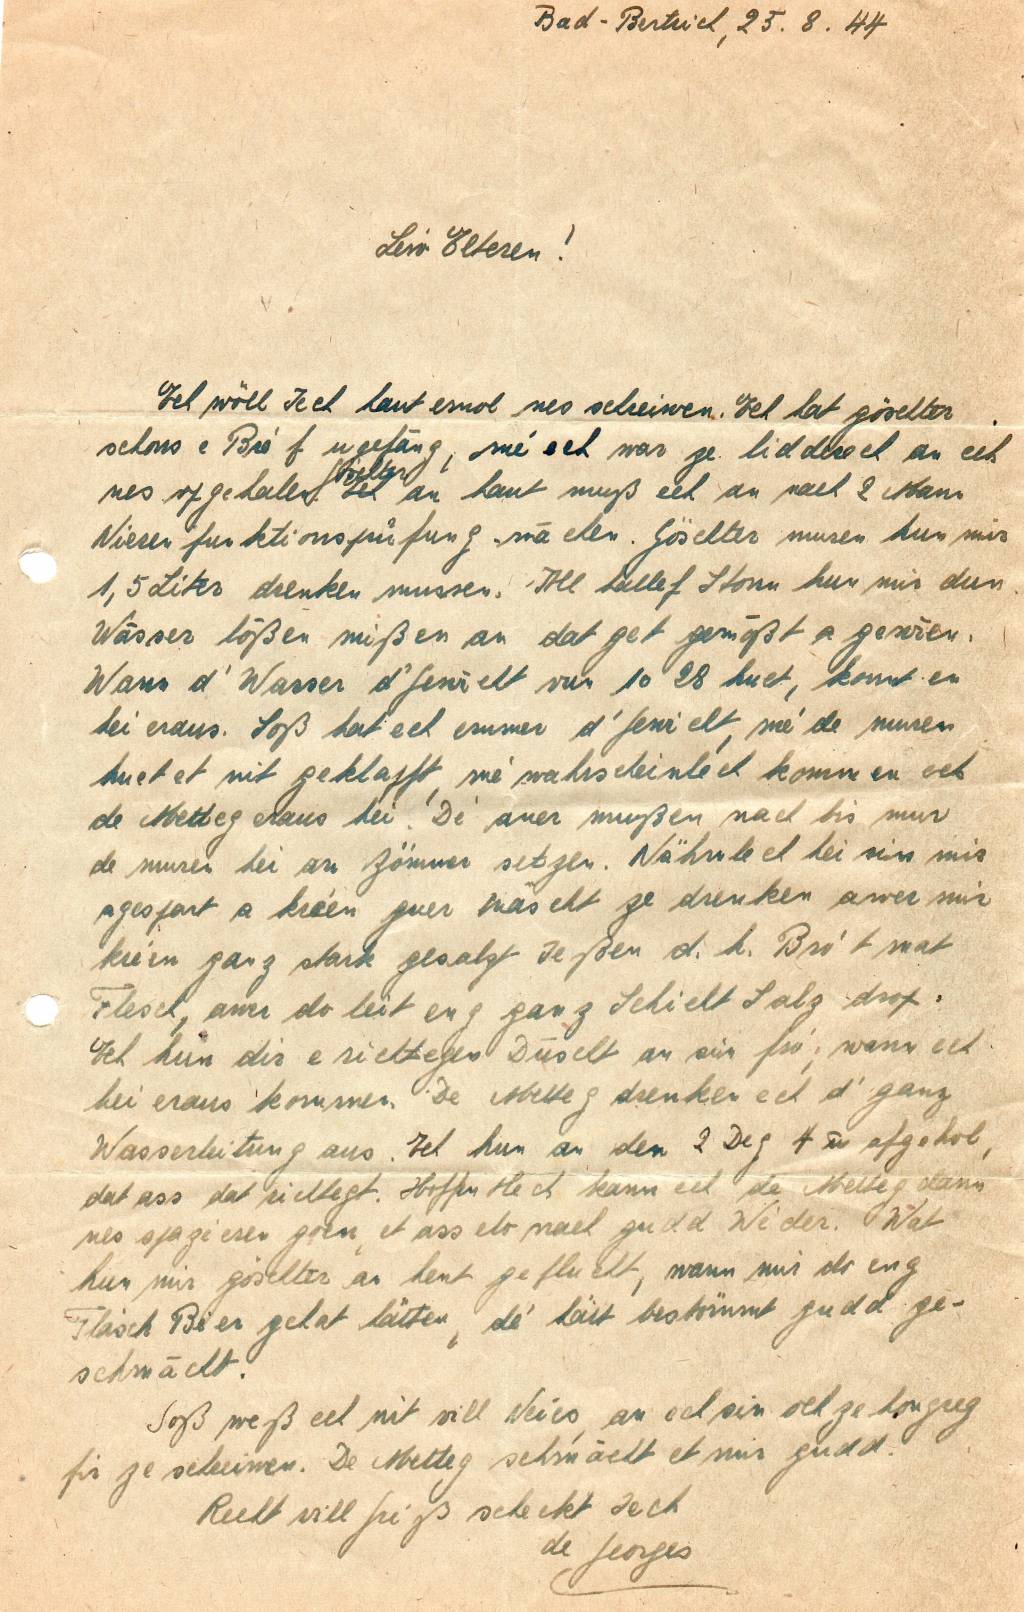 Bad-Bertrich, 25. 8. 44
Leiw Elteren!
Ech wöll Iech haut emol nes schreiwen. Ech hat göschter
schons e Bréf ugefäng, mé ech war ze lidderech an ech
nes opgehalen. Göschter
an haut muß ech an nach 2 Mann
Nierenfunktionsprüfung mächen. Göschter muren hun mir
1,5 Liter drenken mussen. All hallef Stonn hun mir dun
Wässer lößen mißen an dat get gemößt a gewien.
Wann d' Wasser d' Gewicht vun 10 28 huet, kommt en
hei eraus. Soß hat ech emmer d' Gewicht, mé de muren
huet et nit geklappt, mé wahrscheinléch kommen ech
de Metteg eraus hei! Dé aner mußen nach bis mur
de muren hei am Zömmer setzen. Nähmlech hei sin mir
agespart a kréen guer näscht ze drenken awer mir
kréen ganz stark gesalzt Ießen d. h. Bró't mat
Flesch, awer do leit eng ganz Schicht Salz drop.
Ech hun dir e richtegen Duscht an sin fró, wann ech
hei eraus kommen. De Metteg drenken ech d' ganz
Wasserleitung aus. Ech hun an den 2 Deg 4 ofgeholl,
dat ass dat richtegt. Hoffentlech kann ech de Metteg dann
nes spazieren goen, et ass elo nach gudd Wieder. Wat
hun mir göschter an hent geflucht, wann mir do eng
Fläsch Béer gehat hätten, dé hätt bestömmt gudd ge-
schmächt.
Soß weß ech nit vill Neies, an ech sin och ze hongreg
fir ze schreiwen. De Metteg schmächt et mir gudd.
Recht vill Griß scheckt Iech
de Georges